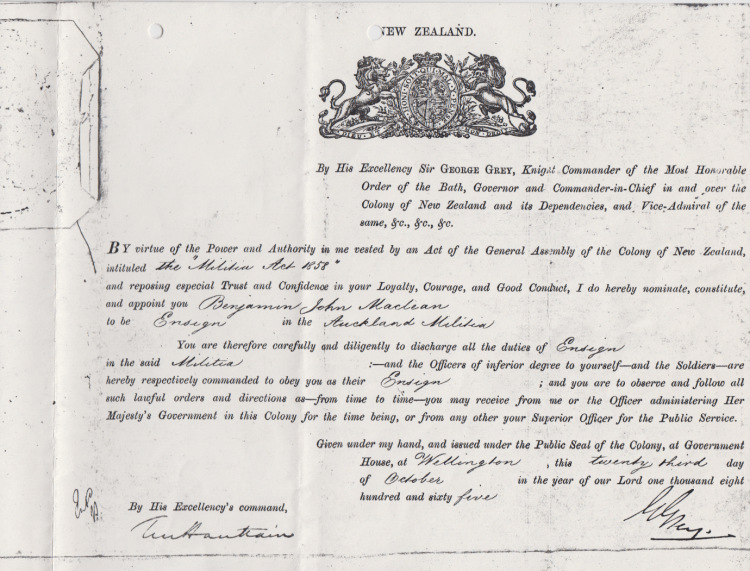 NEW ZEALAND.
HONI SOIT QUI MAL Y PENSE
DIEU ET MON DROIT
By His Excellency Sir GEORGE GREY, Knight Commander of the Most Honorable
Order of the Bath, Governor and Commander-in-Chief in and over the
Colony of New Zealand and its Dependencies, and Vice-Admiral of the
same, &c., &c., &c.
BY virtue of the Power and Authority in me vested by an Act of the General Assembly of the Colony of New Zealand,
intituled the "Militia Act 1858"
and reposing especial Trust and Confidence in your Loyalty, Courage, and Good Conduct, I do hereby nominate, constitute,
and appoint you Benjamin John Maclean
to be Ensign in the Auckland Militia
You are therefore carefully and diligently to discharge all the duties of Ensign
in the said Militia :—and the Officers of inferior degree to yourself—and the Soldiers—are
hereby respectively commanded to obey you as their Ensign ; and you are to observe and follow all
such lawful orders and directions as—from time to time—you may receive from me or the Officer administering Her
Majesty's Government in this Colony for the time being, or from any other your Superior Officer for the Public Service.
Given under my hand, and issued under the Public Seal of the Colony, at Government
House, at Wellington, this twenty third day
of October in the year of our Lord one thousand eight
hundred and sixty five
By His Excellency's command,
G Grey.